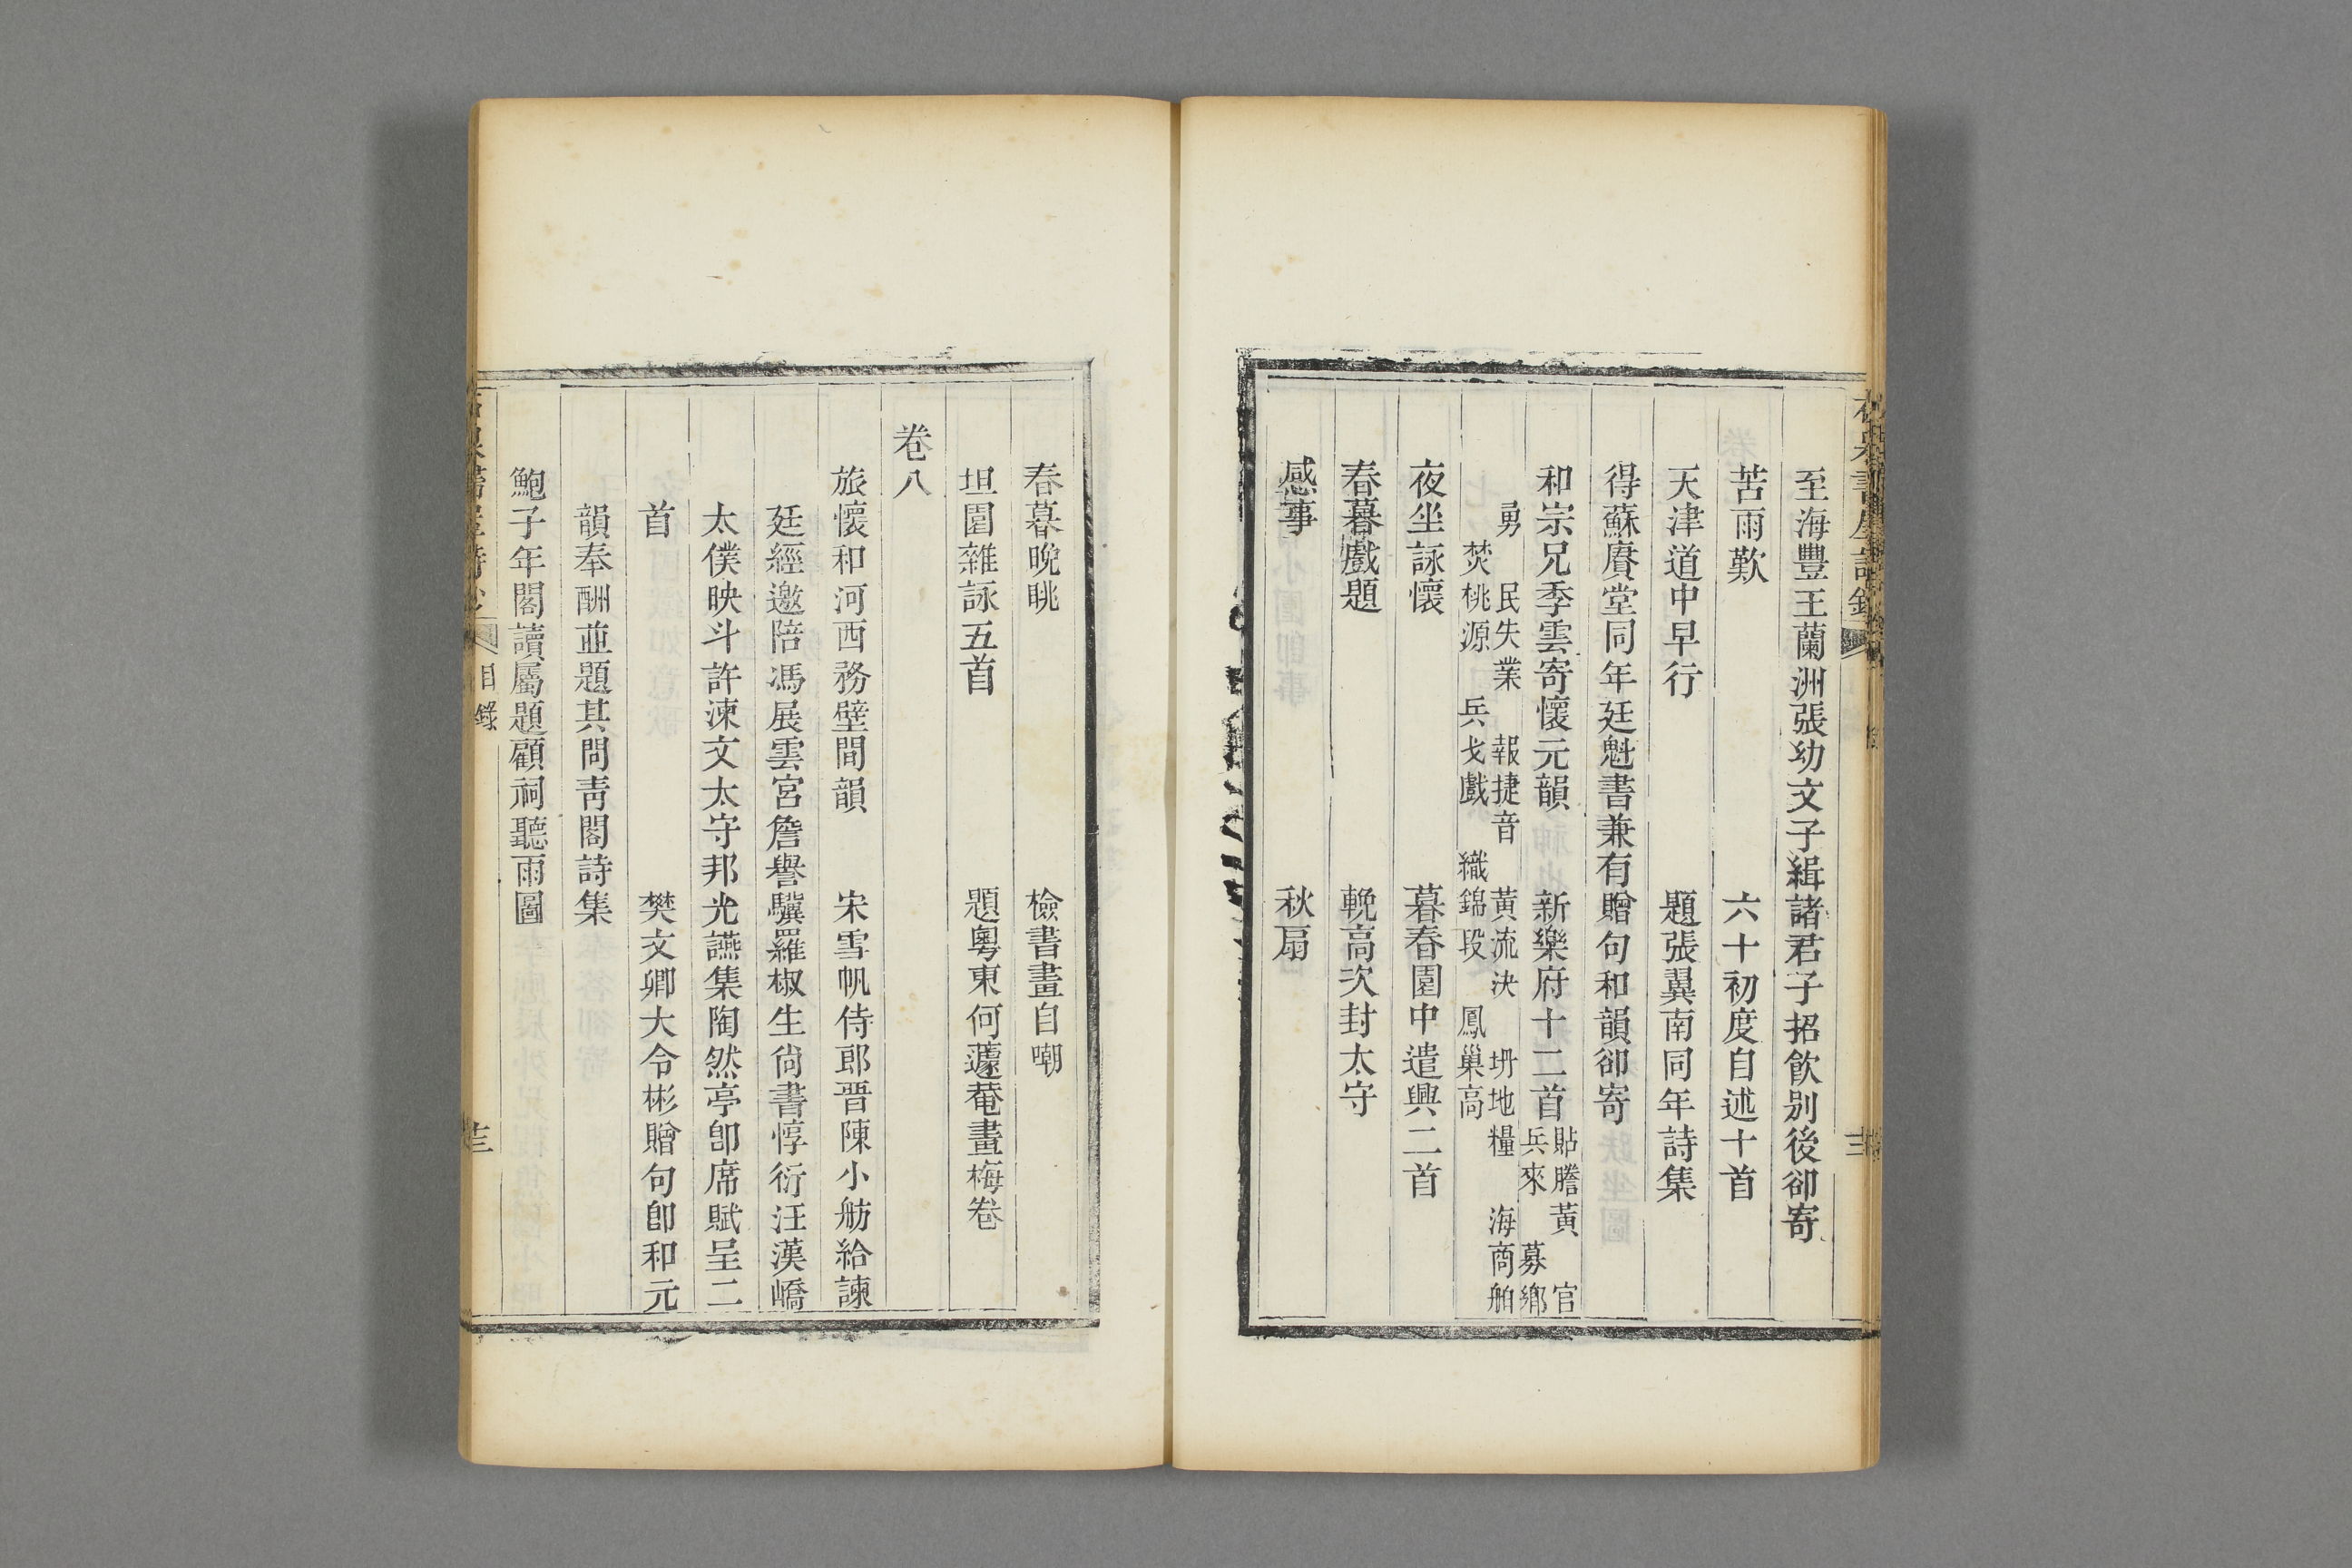 至海豐王蘭洲張幼文子緝諸君子招飲别後卻寄
苦雨歎　六十初度自述十首
天津道中早行　題張翼南同年詩集
得蘇賡堂同年廷魁書兼有贈句和韻卻寄
和宗兄季雲寄懷元韻　新樂府十二首
貼謄黃　官
兵來　募鄉
勇　民失業　報捷音　黃流決　坍地糧　海商舶
焚桃源　兵戈戲　織錦段　鳳巢高
夜坐詠懷　暮春園中遣興二首
春暮戲題　輓高次封太守
感事　秋扇
春暮晚眺　檢書畫自嘲
坦園雜詠五首　題粤東何蘧菴畫梅卷
卷八
旅懷和河西務壁間韻　宋雪帆侍郎晋陳小舫給諫
廷經邀陪馮展雲宮詹譽驥羅椒生尙書惇衍汪漢嶠
太僕映斗許涑文太守邦光讌集陶然亭卽席賦呈二
首　樊文卿大令彬贈句卽和元
韻奉酬並題其問靑閣詩集
鮑子年閣讀屬題顧祠聽雨圖
目錄